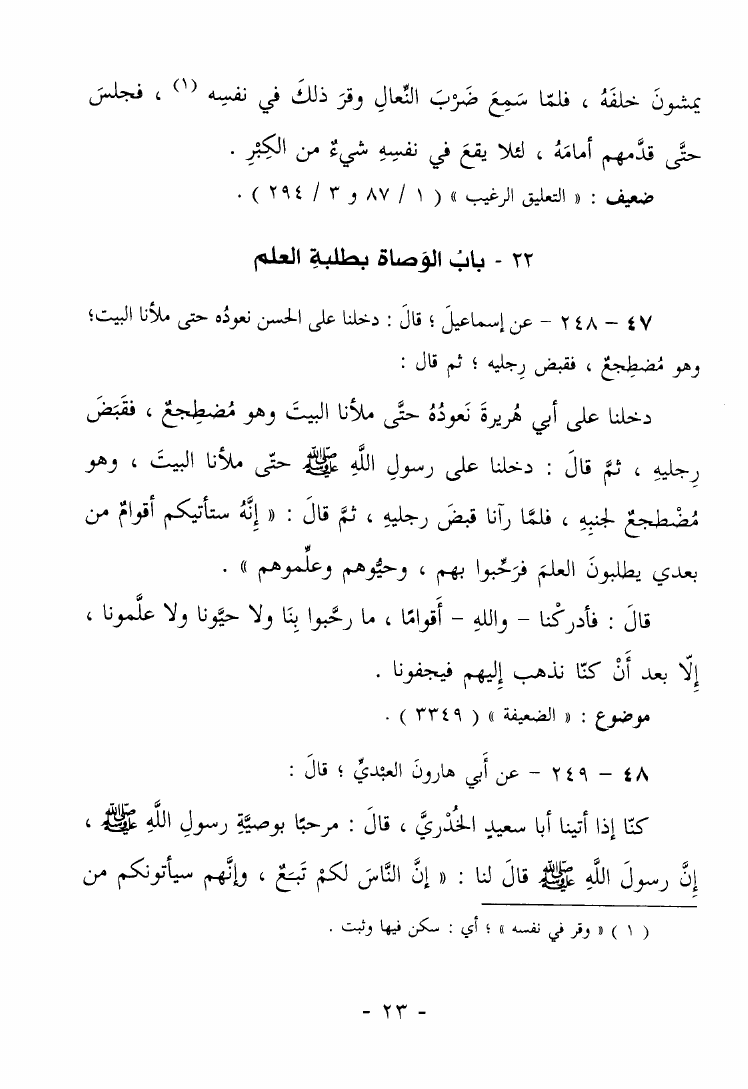 يمشونَ خلفَهُ ، فلمّا سَمِعَ ضَرْبَ النِّعالِ وقرَ ذلكَ في نفسِه (١) ، فجلسَ
حتَّى قدَّمهم أمامَهُ ، لئلا يقعَ في نفسِهِ شيءٌ من الكِبْرِ .
ضعيف : « التعليق الرغيب » ( ١ / ٨٧ و ٣ / ٢٩٤ ) .
٢٢ - بابُ الوَصاة بطلبةِ العلم
٤٧ – ٢٤٨ – عن إسماعيلَ ؛ قالَ : دخلنا على الحسن نعودُه حتى ملأنا البيت؛
وهو مُضطجعٌ ، فقبض رِجليه ؛ ثم قال :
دخلنا على أبي هُريرةَ نَعودُهُ حتَّى ملأنا البيتَ وهو مُضطجعٌ ، فقَبَضَ
رِجليهِ ، ثمَّ قالَ : دخلنا على رسولِ اللَّهِ ﷺ حتّى ملأنا البيتَ ، وهو
مُضْطجعٌ لجنبِهِ ، فلمَّا رآنا قبضَ رجليهِ ، ثمَّ قالَ : « إنَّهُ ستأتيكم أقوامٌ من
بعدي يطلبونَ العلمَ فرَحِّبوا بهم ، وحيُّوهم وعلِّموهم » .
قالَ : فأدركْنا – واللهِ – أَقوامًا ، ما رحَّبوا بِنَا ولا حيَّونا ولا علَّمونا ،
إِلّا بعد أَنْ كنّا نذهب إِليهم فيجفونا .
موضوع : « الضعيفة » ( ٣٣٤٩ ) .
٤٨ – ٢٤٩ – عن أَبي هارونَ العبْديِّ ؛ قالَ :
كنّا إذا أتينا أبا سعيدٍ الخُدْريَّ ، قالَ : مرحبًا بوصيَّةِ رسولِ اللَّهِ ﷺ ،
إنَّ رسولَ اللَّهِ ﷺ قالَ لنا : « إنَّ النَّاسَ لكمْ تَبَعٌ ، وإنَّهم سيأتونكم من
( ١ ) « وقر في نفسه » ؛ أي : سكن فيها وثبت .
- ٢٣ -